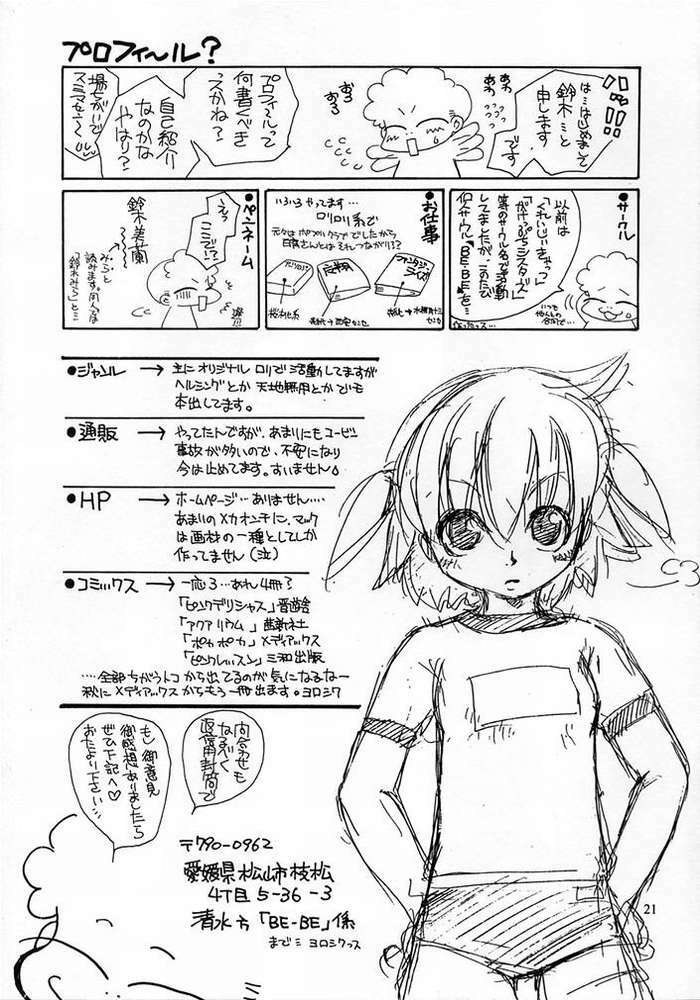 プロフィ〜ル?
は…はじめまして
鈴木ミと
申します
です
あわ
あわ
おろ
おろ
プロフィールって
何書くべき
っスかね?
自己紹介
なのかな
やはり?
場ちがいで
スミマセ〜ン
●サークル
以前は
「くれいじぃきゃっつ」
「がけっぷちシスターズ」
等のサークル名で活動
してましたが、このたび
個人サークル「BE-BE」を…
作ったっス…
●お仕事
いろいろやってます…
ロリロリ系で
●ペンネーム
えっ
ここで!?
鈴木美蘭
みらと
読みます。同人では
「鈴木みら」とミ
●ジャンル → 主にオリジナルロリで活動してますが
ヘルシングとか天地無用とかでも
本出してます。
●通販 → やってたんですが、あまりにもユービン
事故が多いので、不安になり
今は止めてます。すいません
●HP → ホームページ…ありません…
あまりのメカオンチに、マック
は画材の一種としてしか
作ってません(泣)
●コミックス → 一応3…あれ4冊?
「ピンクデリシャス」晋遊舎
「アクアリウム」茜新社
「ポカポカ」メディアックス
「ピンクレッスン」三和出版
…全部ちがうトコから出てるのが気になるなー
秋にメディアックスからもう一冊出ます。ヨロシク
問合わせも
なるべく
返信用封筒で
もし御意見
御感想ありましたら
ぜひ下記へ♡
おたより下さい…
〒790-0962
愛媛県松山市枝松
4丁目5-36-3
清水方「BE-BE」係
までミ ヨロシクっス
21